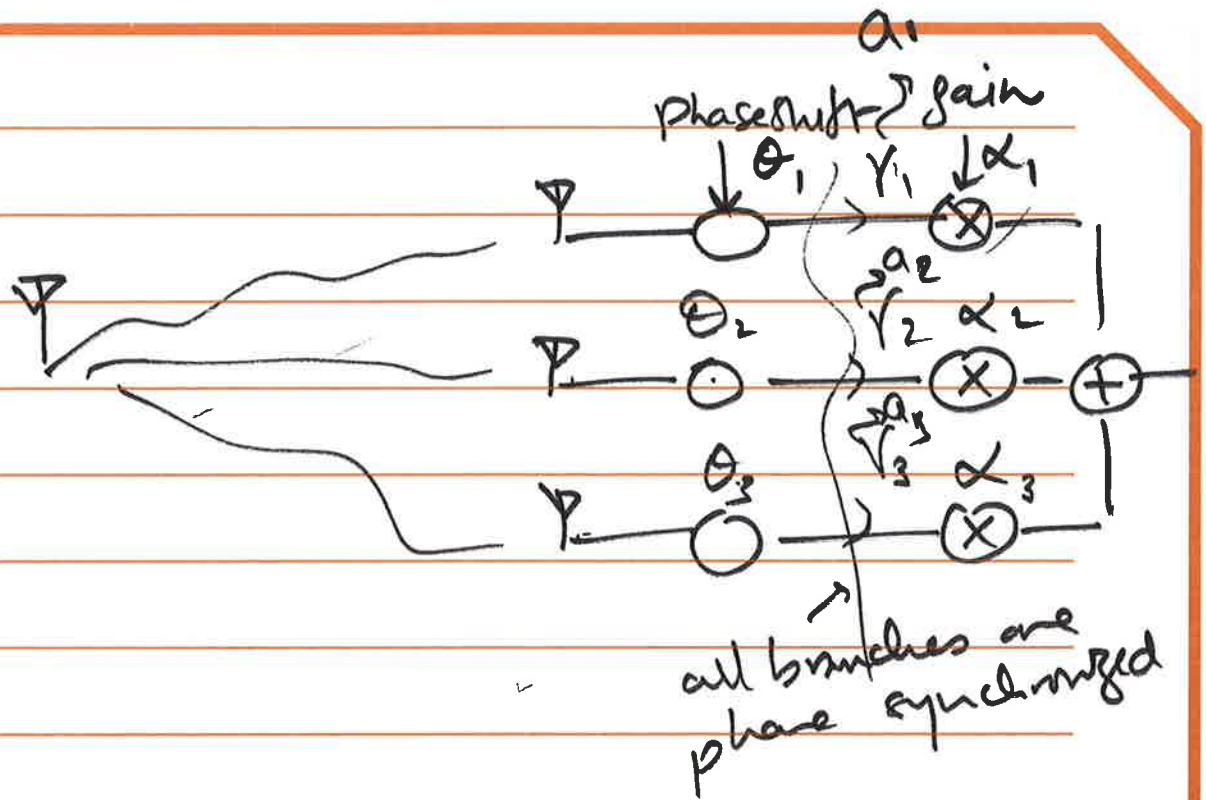 a₁
phase shift gain
θ₁ γ₁ α₁
a₂
θ₂ γ₂ α₂
a₃
θ₃ γ₃ α₃
all branches are
phase synchronized